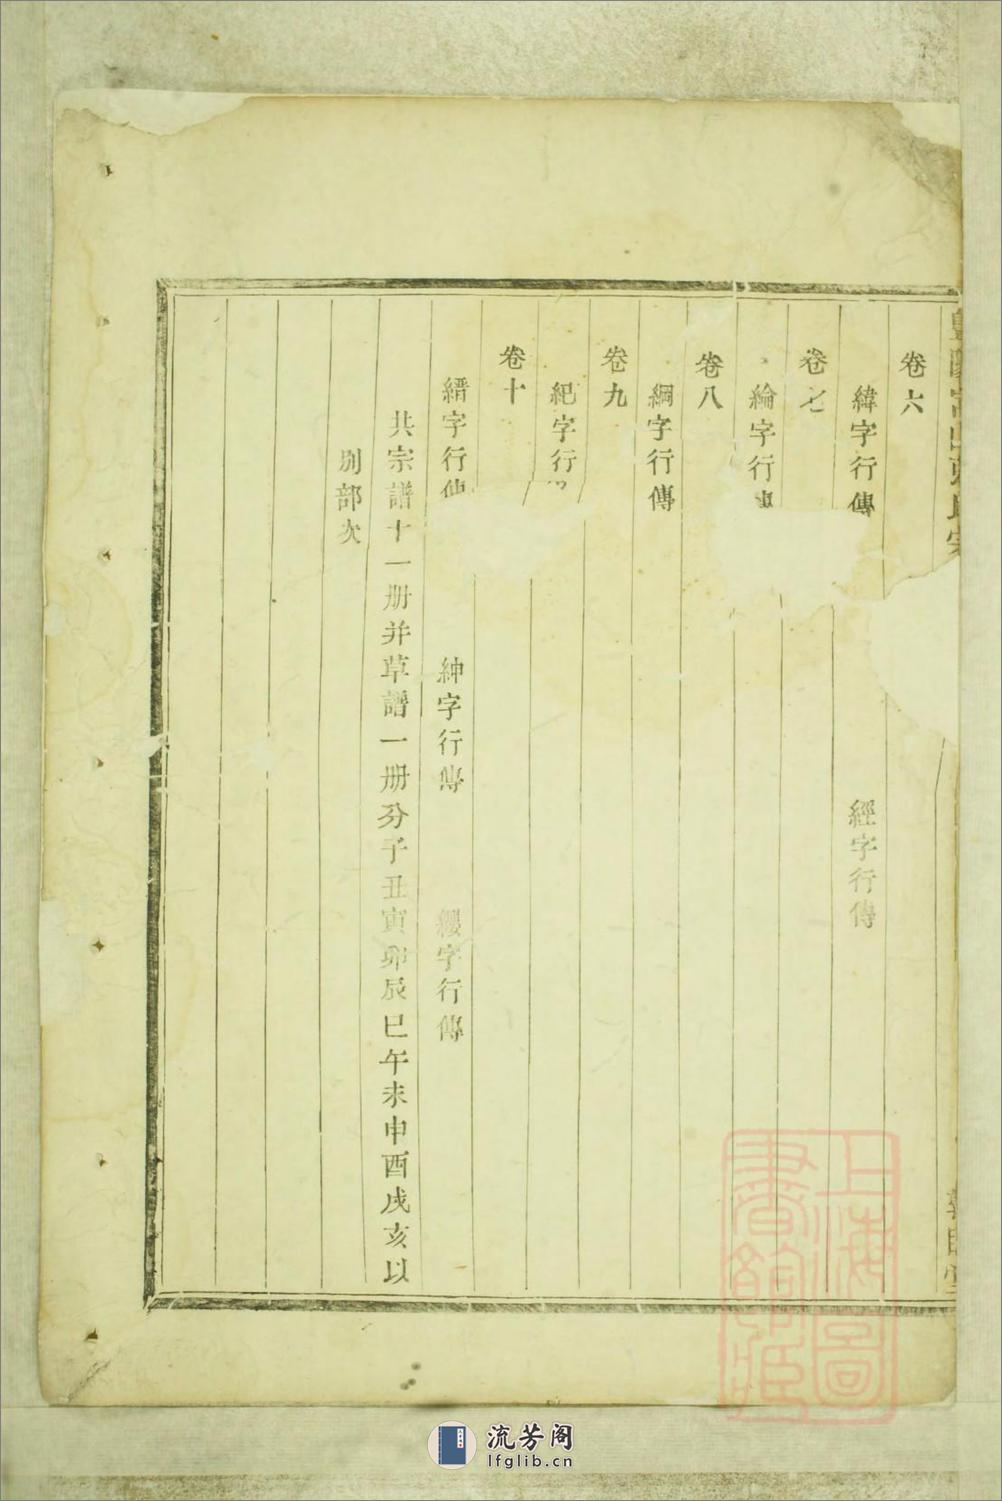 卷六
緯字行傳 經字行傳
卷七
綸字行傳
卷八
綱字行傳
卷九
紀字行
卷十
縉字行傳 紳字行傳 纓字行傳
共宗譜十一册并草譜一册分子丑寅卯辰巳午未申酉戌亥以
別部次
上海圖書館藏
流芳阁
lfglib.cn